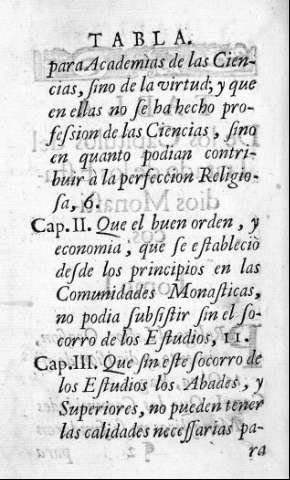 TABLA.
para Academias de las Cien-
cias, ſino de la virtud, y que
en ellas no ſe ha hecho pro-
feſsion de las Ciencias, ſino
en quanto podian contri-
buir à la perfeccion Religio-
ſa, 6.
Cap.II. Que el buen orden, y
economia, que ſe eſtableciò
deſde los principios en las
Comunidades Monaſticas,
no podia ſubſiſtir ſin el ſo-
corro de los Eſtudios, 11.
Cap.III. Que ſin eſte ſocorro de
los Eſtudios los Abades, y
Superiores, no pueden tener
las calidades neceſſarias pa-
ra